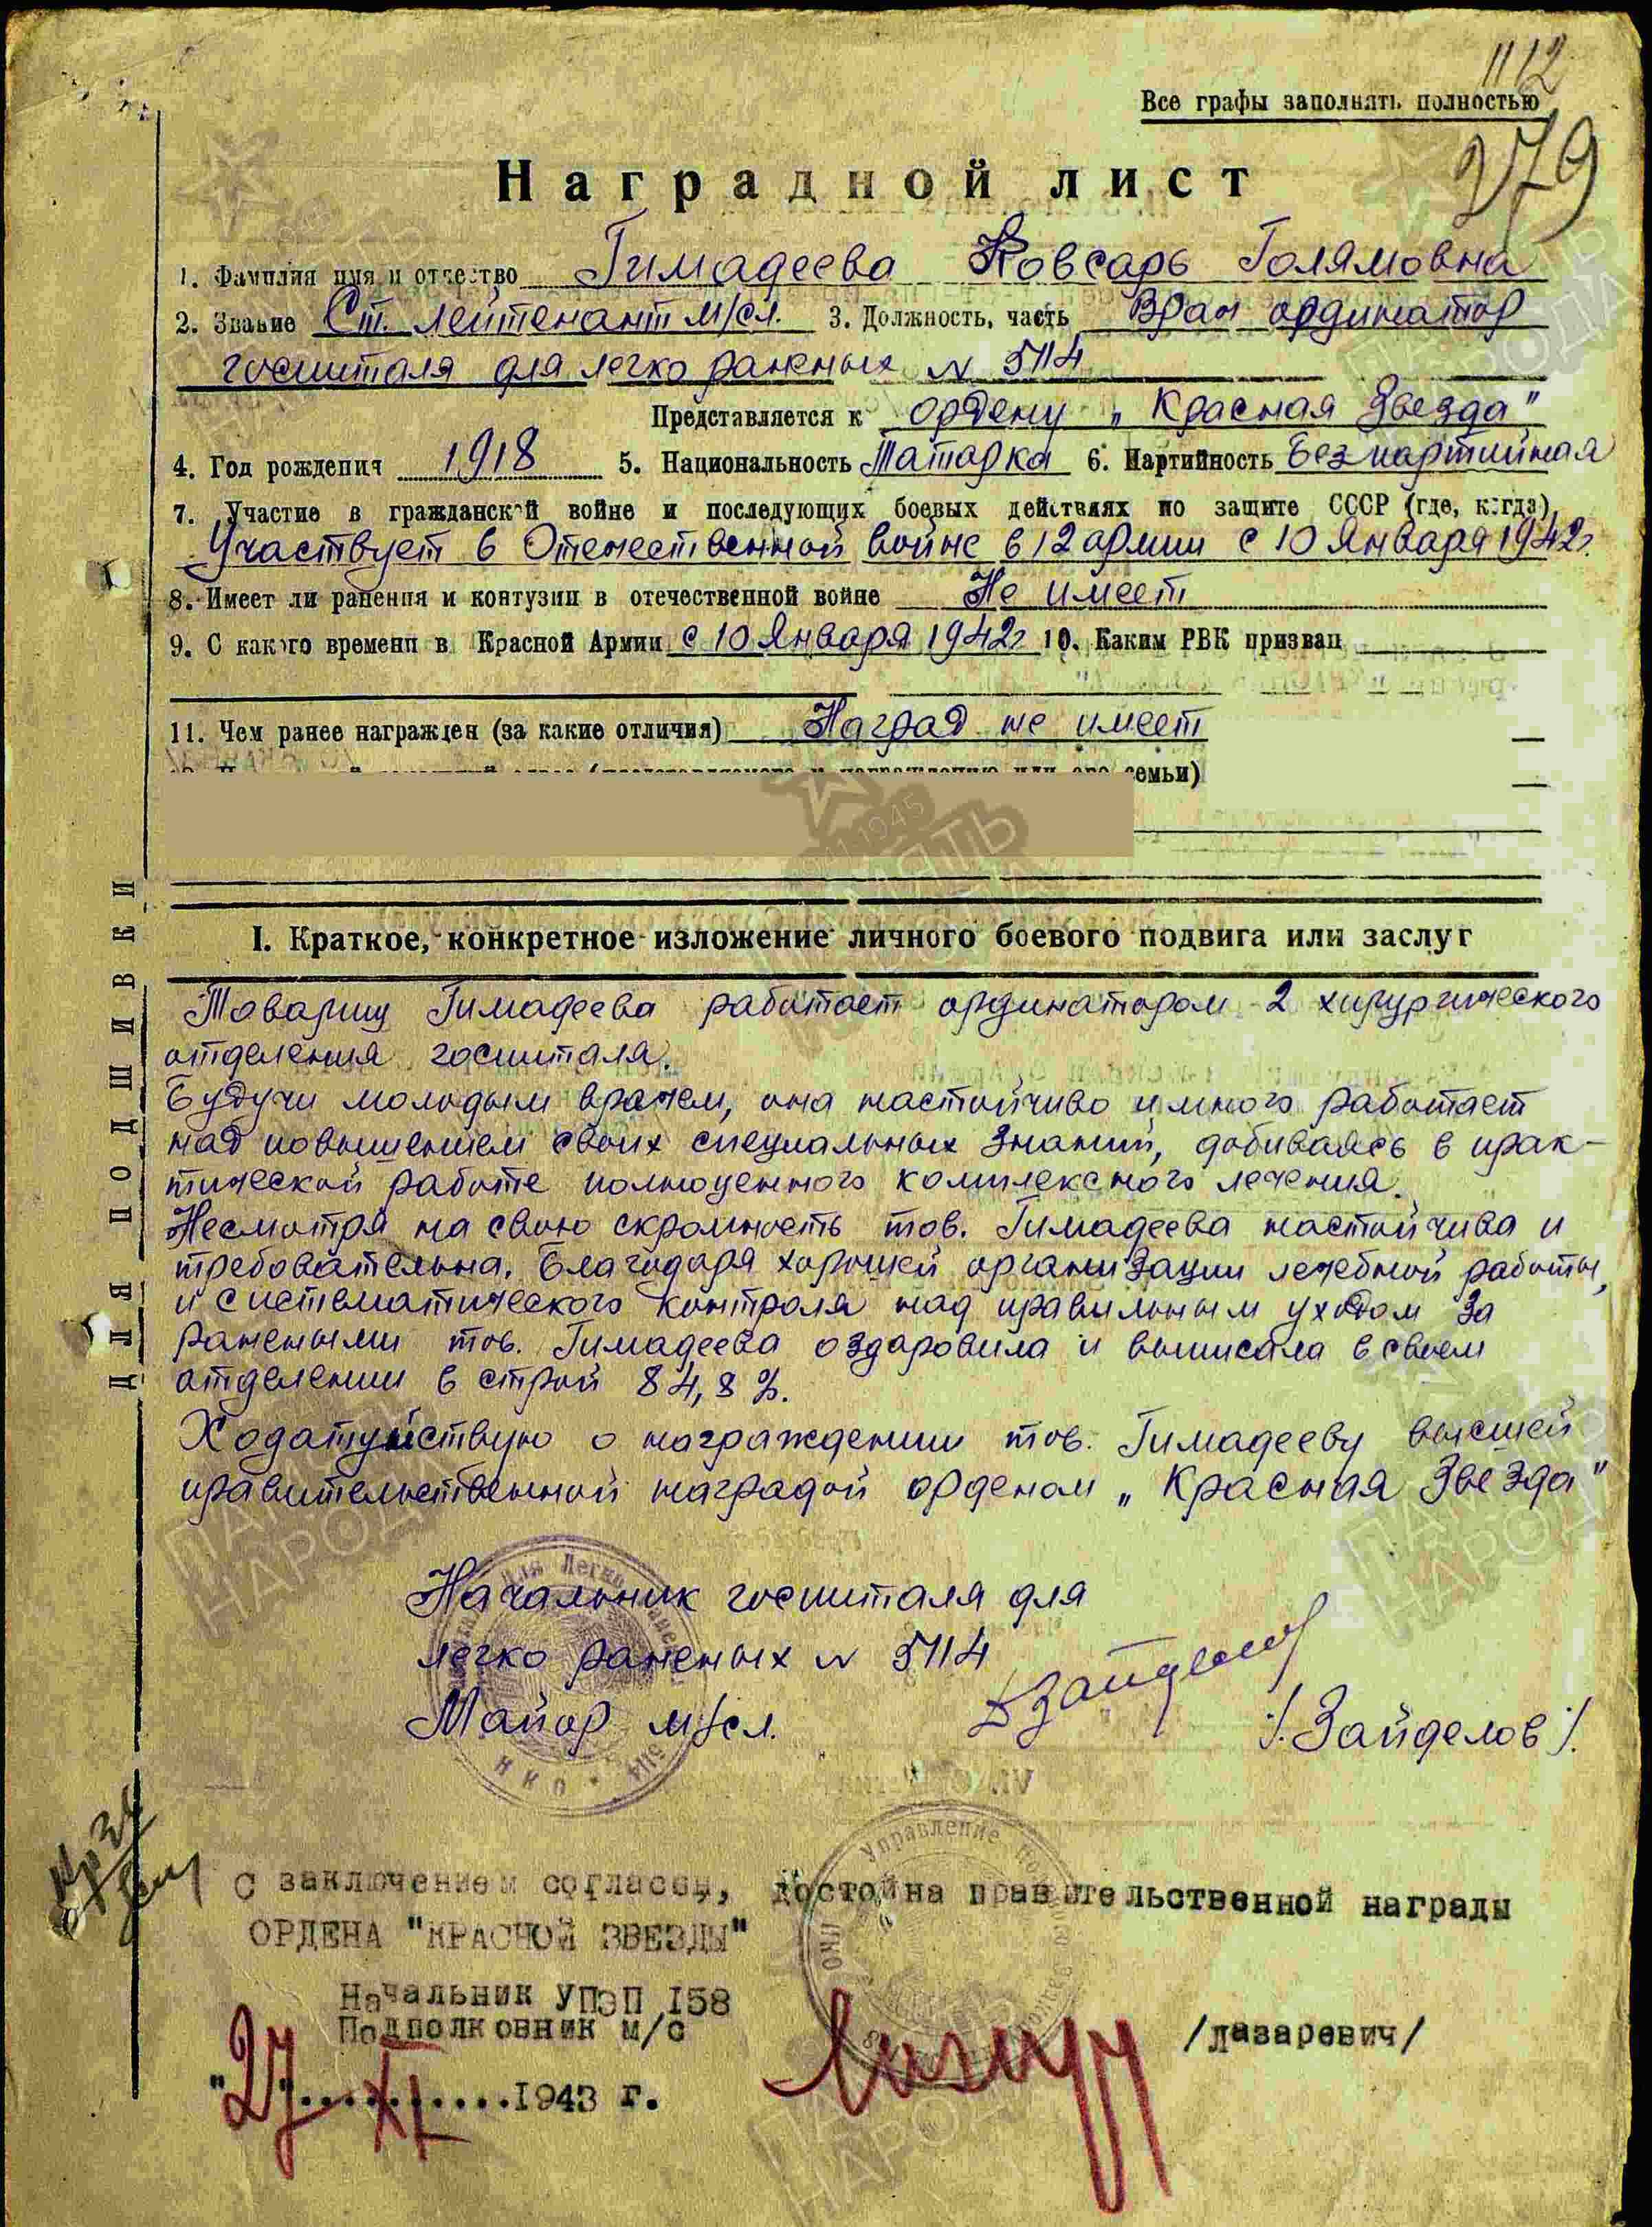 1112
Все графы заполнять полностью
279
Наградной лист
1. Фамилия имя и отчество Гимадеева Ковсарь Голямовна
2. Звание Ст. лейтенант м/сл. 3. Должность, часть Врач ординатор
госпиталя для легко раненых N 5114
Представляется к ордену „Красная Звезда"
4. Год рождения 1918 5. Национальность Татарка 6. Партийность Безпартийная
7. Участие в гражданской войне и последующих боевых действиях по защите СССР (где, когда)
Участвует в Отечественной войне в 12 армии с 10 Января 1942г.
8. Имеет ли ранения и контузии в отечественной войне Не имеет
9. С какого времени в Красной Армии с 10 Января 1942г 10. Каким РВК призван
11. Чем ранее награжден (за какие отличия) Наград не имеет
семьи)
I. Краткое, конкретное изложение личного боевого подвига или заслуг
Товарищ Гимадеева работает ординатором 2 хирургического
отделения госпиталя.
Будучи молодым врачем, она настойчиво и много работает
над повышением своих специальных знаний, добиваясь в прак-
тической работе полноценного комплексного лечения.
Несмотря на свою скромность тов. Гимадеева настойчива и
требовательна. Благодаря хорошей организации лечебной работы,
и систематического контроля над правильным уходом за
ранеными тов. Гимадеева оздоровила и выписала в своем
отделении в строй 84,8%.
Ходатуйствую о награждении тов. Гимадееву высшей
правительственной наградой орденом „Красная Звезда"
Начальник госпиталя для
легко раненых N 5114
Майор м/сл.
/.Зайделов/.
С заключением согласен, достойна правительственной награды
ОРДЕНА "КРАСНОЙ ЗВЕЗДЫ"
Начальник УПЭП 158
Подполковник м/с
/Лазаревич/
"27" XI 1943 г.
ДЛЯ ПОДШИВКИ
Управление
ПАМЯТЬ НАРОДА